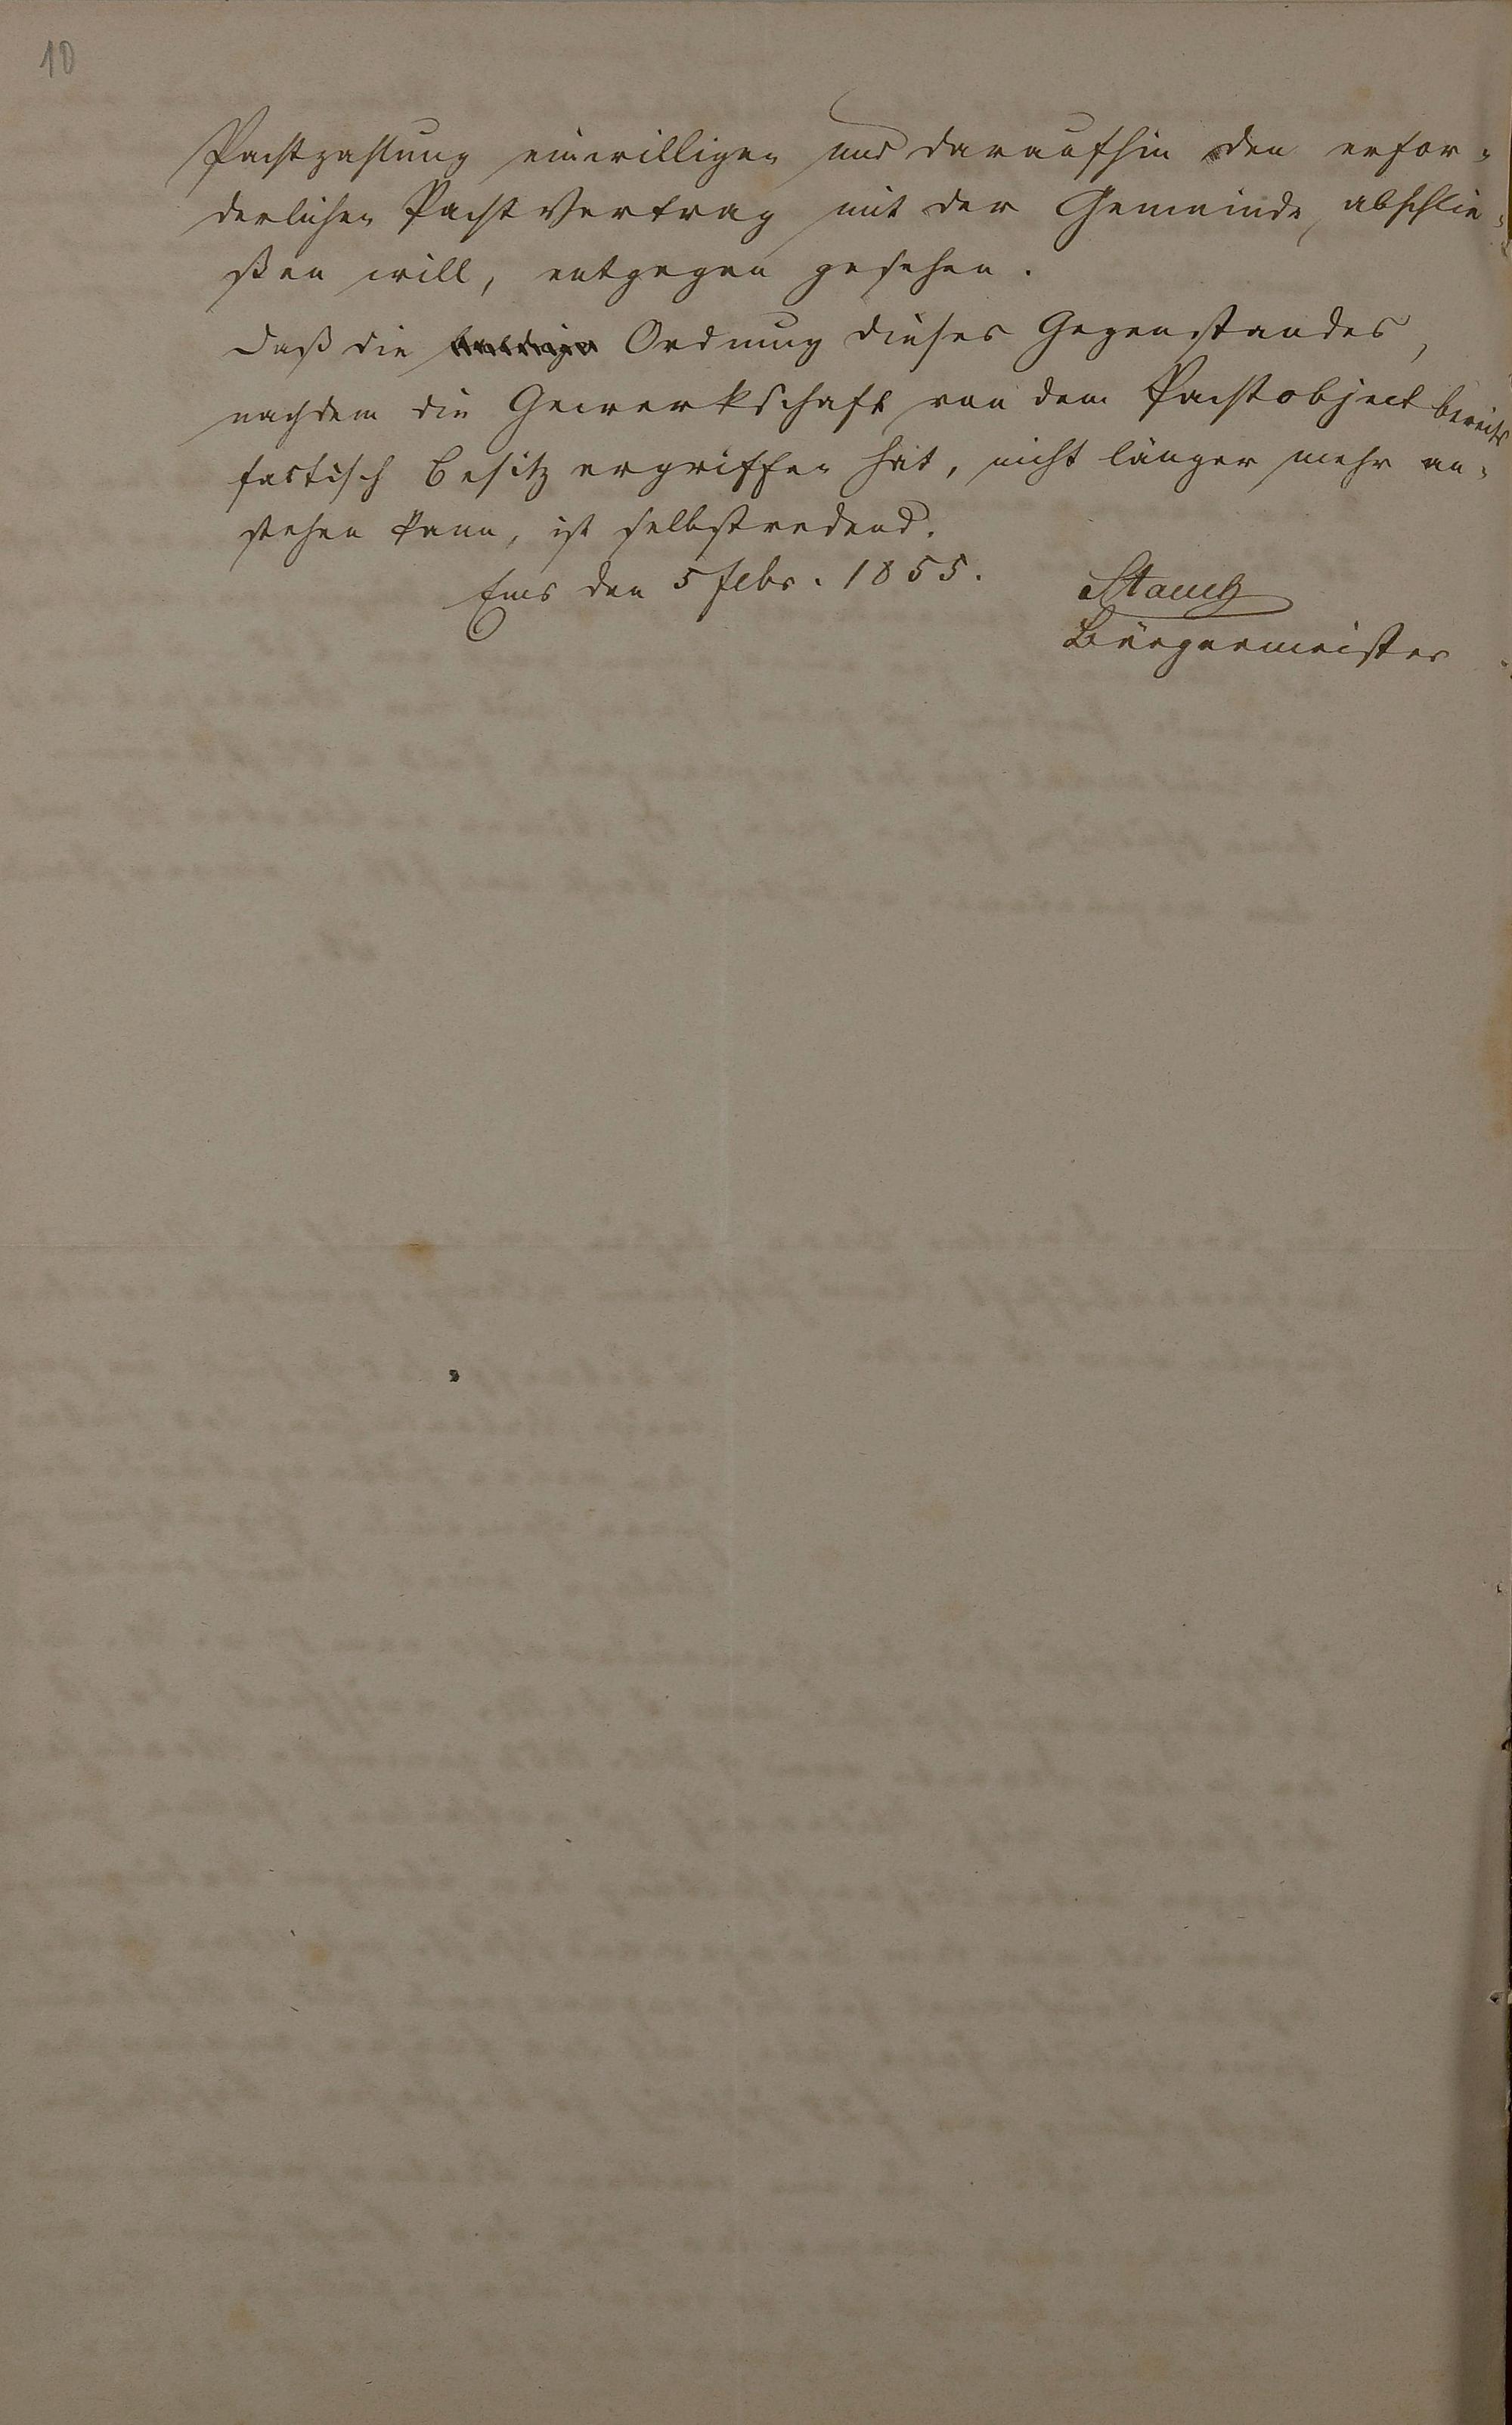 10
Pachtzahlung einwilligen und daraufhin den erfor-
derlichen Pacht Vertrag mit der Gemeinde, abschlie-
ßen will, entgegen gesehen.
Daß die baldige Ordnung dieses Gegenstandes,
nachdem die Gewerkschaft von dem Pachtobject bereits
factisch Besitz ergriffen hat, nicht länger mehr an-
stehen kann, ist selbstredend.
Ems den 5 Febr. 1855.
Bürgermeister